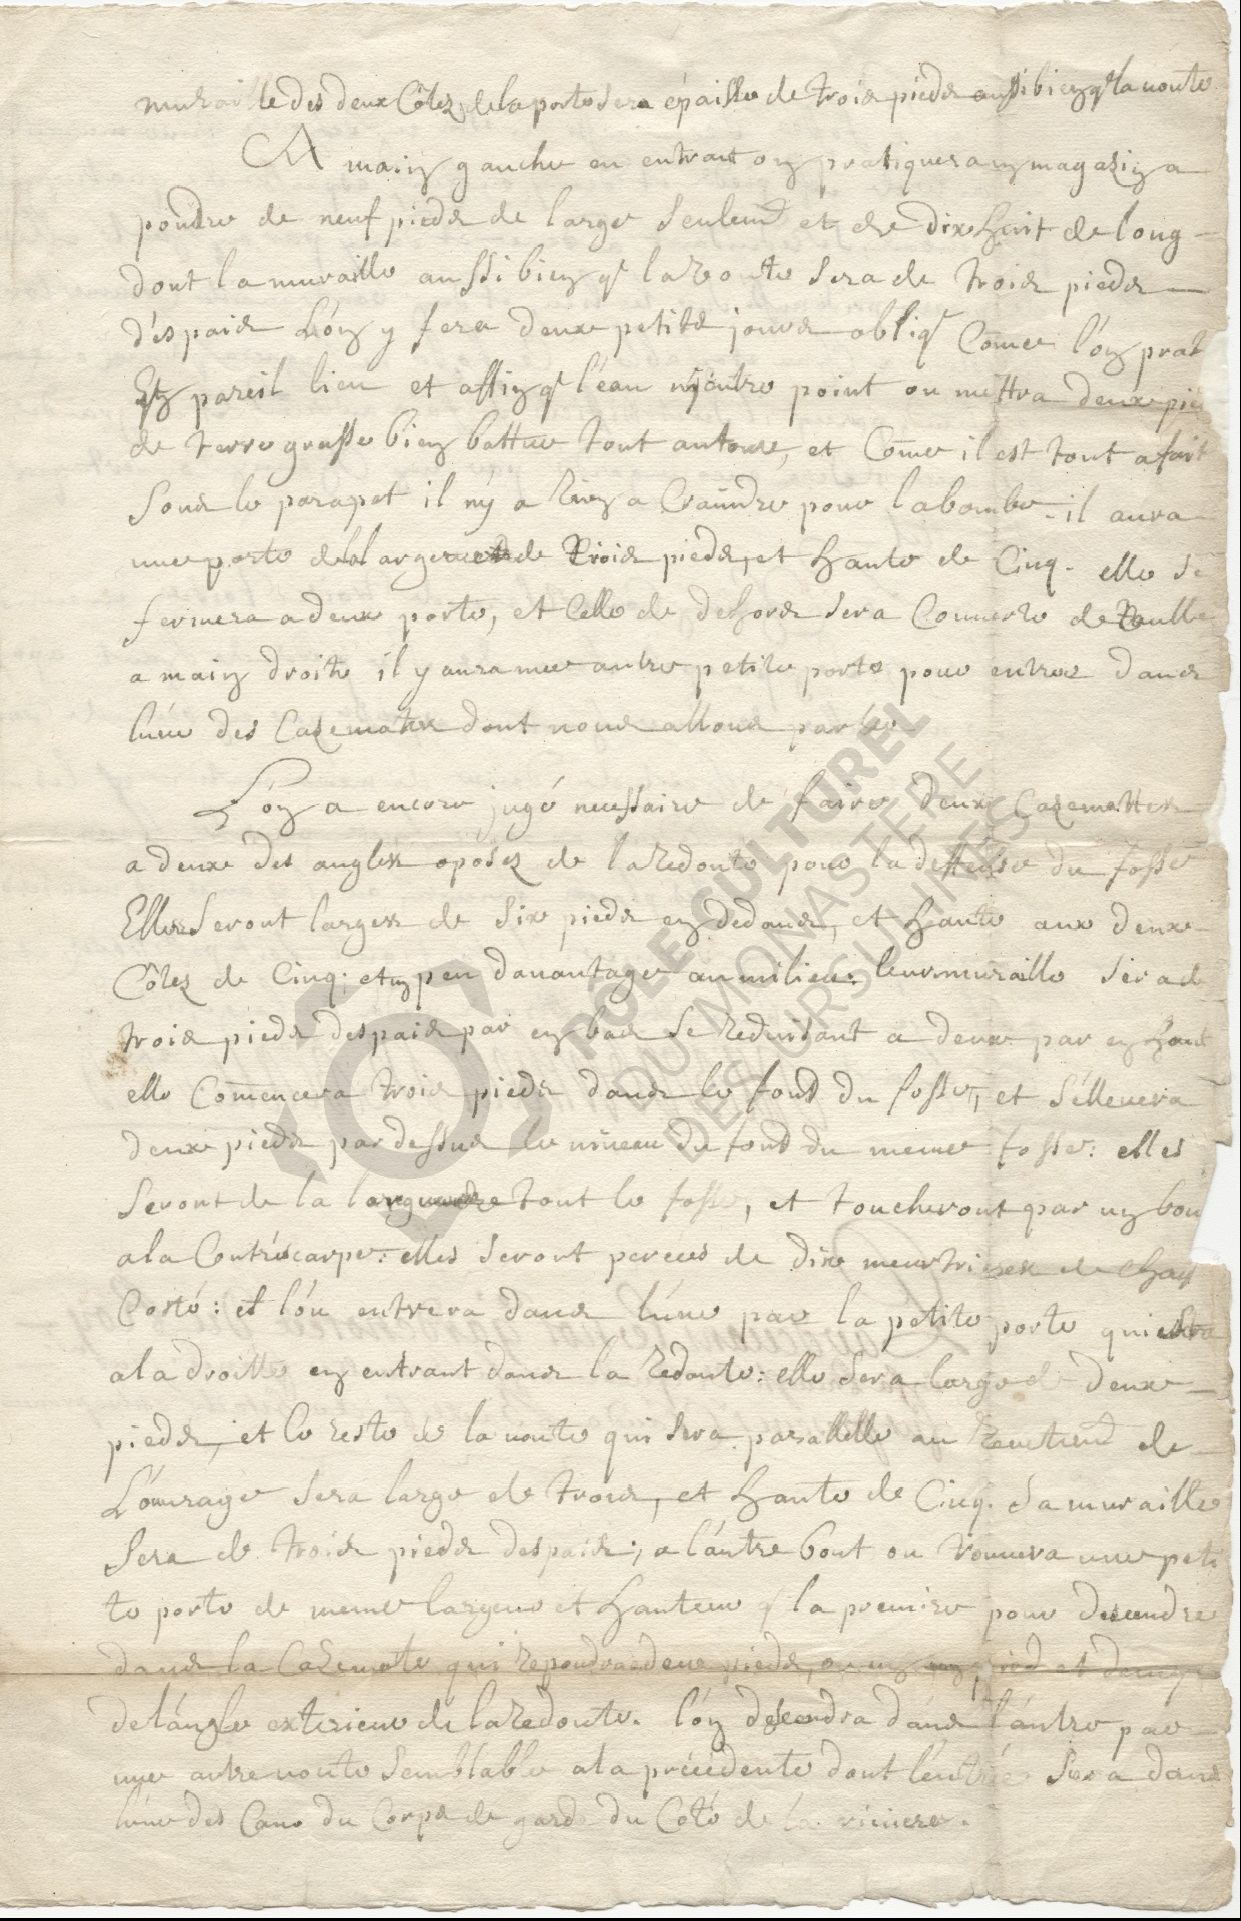 muraille des deux Côtez de la porte sera épaisse de trois pieds aussi bien q̃ la voute
A main gauche en entrant on pratiquera un magazin a
poudre de neuf pieds de large seulem̃t et de dix huit de long
dont la muraille aussi bien q̃ la voute sera de trois pieds
d'espais L'on y fera deux petits jours obliq̃ Com̃e l'on prat
En pareil lieu et affin q̃ l'eau n'y entre point on mettra deux pie
de terre grasse bien battue tout autour, et Com̃e il est tout a fait
sous le parapet il n'y a rien a Craindre pour la bombe. il aura
une porte de la largeur de trois pieds, et haute de Cinq. elle se
fermera a deux porte, et Celle de dehors sera Couuerte de taulle
a main droite il y aura une autre petite porte pour entrer dans
l'une des Cazemates dont nous allons parler
L'on a encore jugé necessaire de faire deux Cazemattes
a deux des angles oposez de la redoute pour la deffense du fossé
Elles seront larges de six pieds en dedans, et haute aux deux
Côtez de Cinq. et un peu dauantage au milieu: leur muraille sera de
trois pieds despais par en bas se reduisant a deux par en haut
elle Com̃encera trois pieds dans le fond du fossé, et s'élleuera
deux pieds par dessus le niueau du fond du meme fossé: elles
seront de la longueur de tout le fossé, et toucheront par un bou
a la Contrescarpe: elles seront percees de dix meurtrieres de chaq̃
Costé: et l'on entrera dans l'une par la petite porte qui sera
a la droitte en entrant dans la redoute: elle sera large de deux
pieds, et le reste de la voute qui sera parallelle au reuetem̃t de
L'ouurage sera large de trois, et haute de Cinq. sa muraille
sera de trois pieds despais; a l'autre bout on trouuera une peti
te porte de meme largeur et hauteur q̃ la premiere pour descendre
dans la Cazemate qui repondra a deux pieds, ou un pied et demy
de l'angle exterieur de la redoute. l'on descendra dans l'autre par
une autre voute semblable a la précédente dont l'entrée sera dans
l'une des Caue du Corps de garde du Coté de la riuiere.
PÔLE CULTUREL
DU MONASTÈRE
DES URSULINES